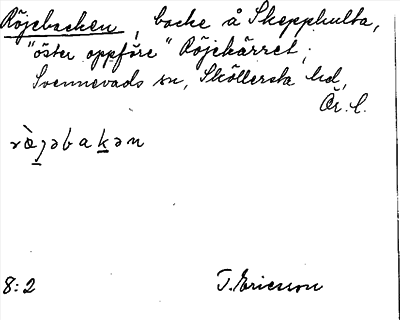 Röjebacken, backe å Skepphulta,
"öster oppföre" Röjekärret,
Svennevads sn, Sköllersta hd,
Ör. l.
8:2 T. Ericsson